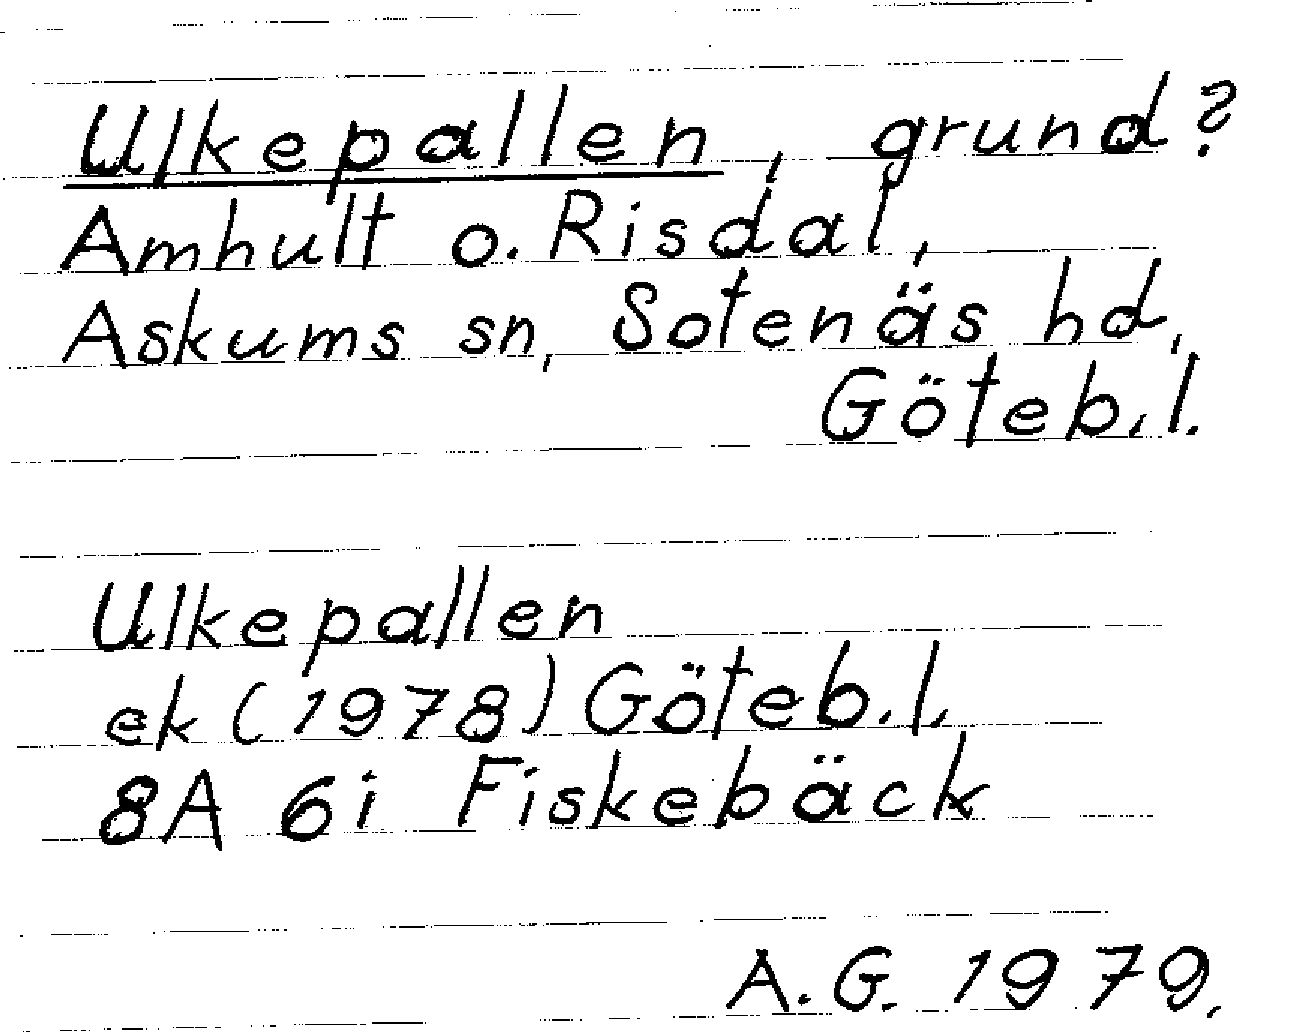 Ulkepallen, grund?
Amhult o. Risdal,
Askums sn, Sotenäs hd,
Göteb.l.
Ulkepallen
ek (1978) Göteb.l.
8A 6i Fiskebäck
A.G. 1979.